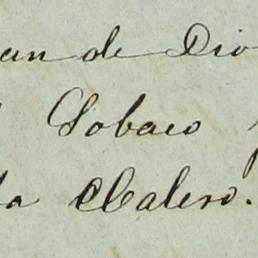 an de Dio
Lobaco
la Calero.